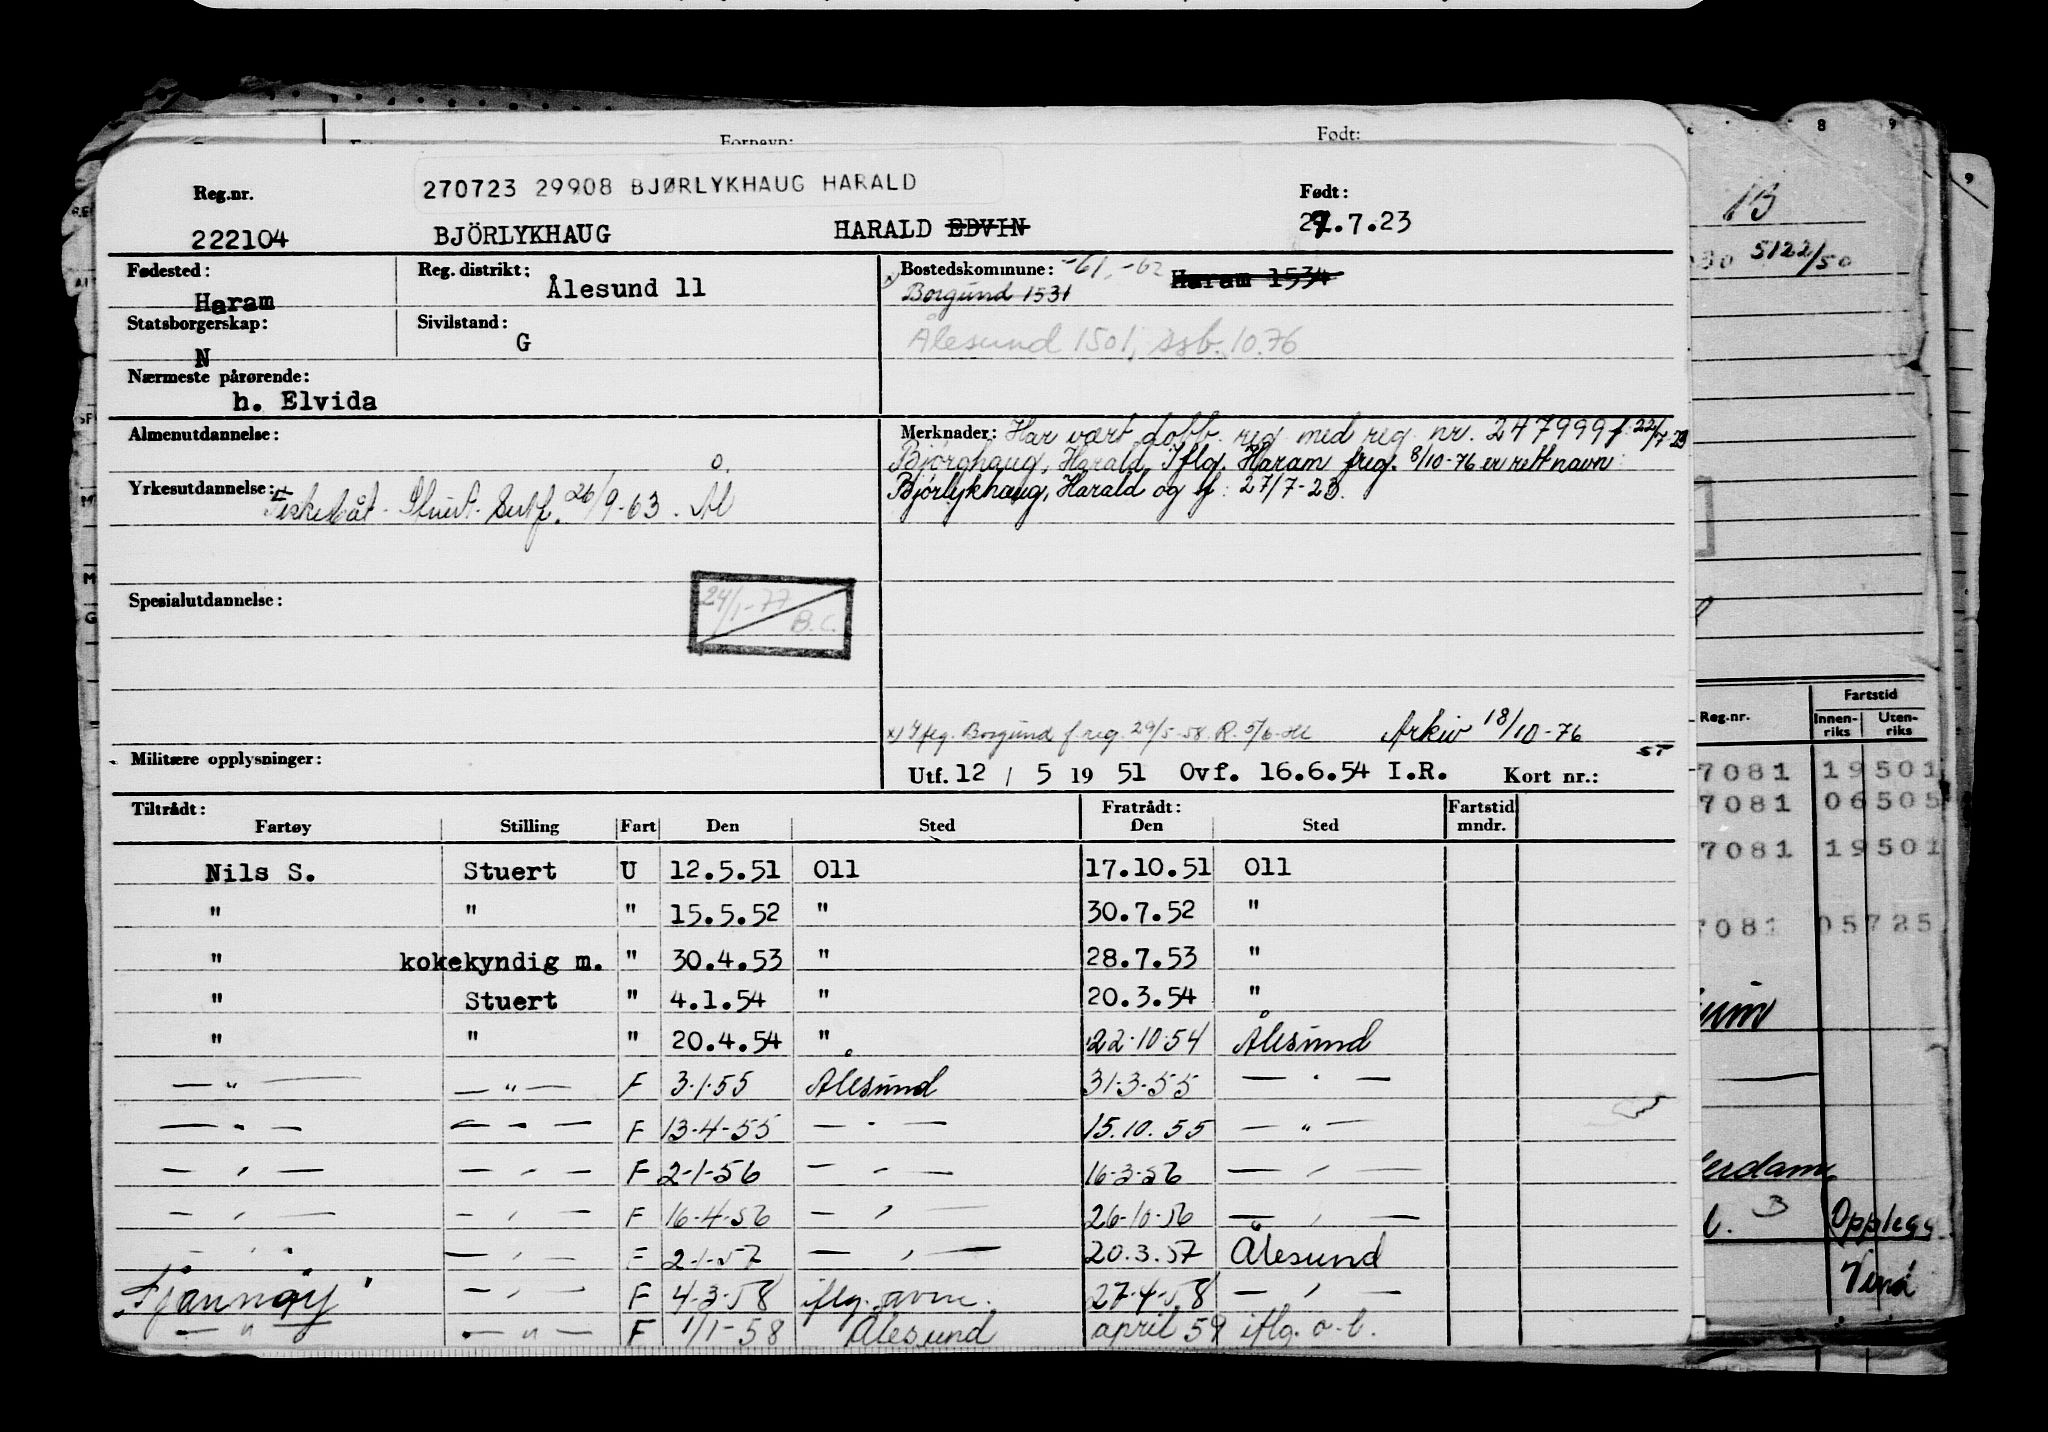 Fornavn: Født:
270723 29908 BJØRLYKHAUG HARALD
Reg.nr. Født:
222104 BJÖRLYKHAUG HARALD EDVIN 27.7.23
Fødested: Haram
Reg. distrikt: Ålesund 11
Bostedskommune: -61, -62 Haram 1534
x) Borgund 1531
Statsborgerskap: N
Sivilstand: G
Ålesund 1501, ssb. 10.76
Nærmeste pårørende:
h. Elvida
Almenutdannelse:
Merknader: Har vært dobb. reg. med reg. nr. 247999 f. 22/7-23
Bjørghaug, Harald. Iflg. Haram freg. 8/10-76 er rett navn
Bjørlykhaug, Harald og f: 27/7-23.
Yrkesutdannelse: Fiskebåt-Stuert-Sertf. 26/9-63. Ål
Spesialutdannelse:
24/1-77
B.C.
x) Iflg. Borgund f.reg. 29/5-58. R. 5/6- Arkiv 18/10-76
Militære opplysninger:
Utf. 12 / 5 19 51 Ovf. 16.6.54 I.R. Kort nr.: ST
Tiltrådt: Fratrådt: Fartstid
Fartøy Stilling Fart Den Sted Den Sted mndr.
Nils S. Stuert U 12.5.51 O11 17.10.51 O11
" " " 15.5.52 " 30.7.52 "
" kokekyndig m. " 30.4.53 " 28.7.53 "
" Stuert " 4.1.54 " 20.3.54 "
" " " 20.4.54 " 22-10-54 Ålesund
— " — — " — F 3-1-55 Ålesund 31-3-55 — " —
— " — — " — F 13-4-55 — " — 15.10.55 — " —
— " — — " — F 2-1-56 — " — 16-3-56 — " —
— " — — " — F 16-4-56 — " — 26-10-56 — " —
— " — — " — F 2-1-57 — " — 20.3.57 Ålesund
"Fjannøy" — " — F 4-3-58 iflg. avm. 27-4-58 — " —
— " — — " — F 1/1-58 Ålesund april 59 iflg. o-l.
13
5122/50
Reg.nr. Fartstid
Innen-riks Uten-riks
7081 19501
7081 06505
7081 19501
7081 05725
3 Opplegg